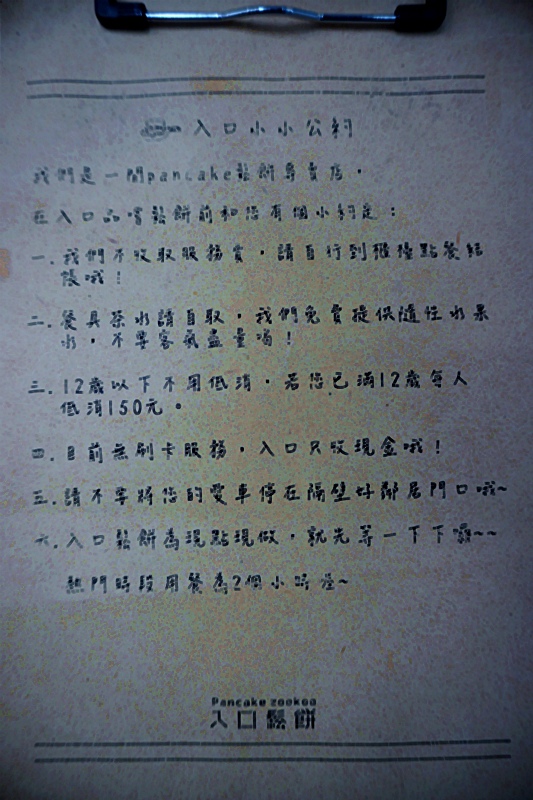 入口小小公約
我們是一間pancake鬆餅專賣店，
在入口品嚐鬆餅前和您有個小約定：
一.我們不收取服務費，請自行到櫃檯點餐結
帳哦！
二.餐具茶水請自取，我們免費提供隨性水果
水，不要客氣盡量喝！
三.12歲以下不用低消，若您已滿12歲每人
低消150元。
四.目前無刷卡服務，入口只收現金哦！
五.請不要將您的愛車停在隔壁好鄰居門口哦~
六.入口鬆餅為現點現做，就先等一下下囉~~
熱門時段用餐為2個小時
Pancake zookoo
入口鬆餅